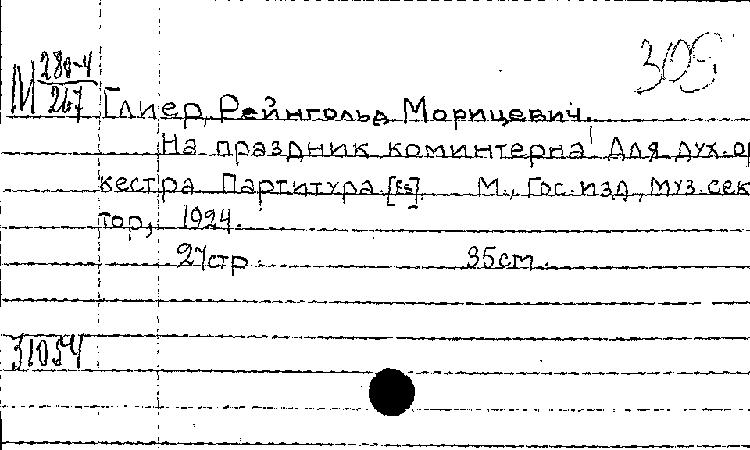 309
М 280-4
267
Глиер, Рейнгольд Морицевич.
На праздник коминтерна! Для дух. ор
кестра Партитура. [Es]. М., Гос. изд, муз. сек
тор, 1924.
27стр. 35см.
31054